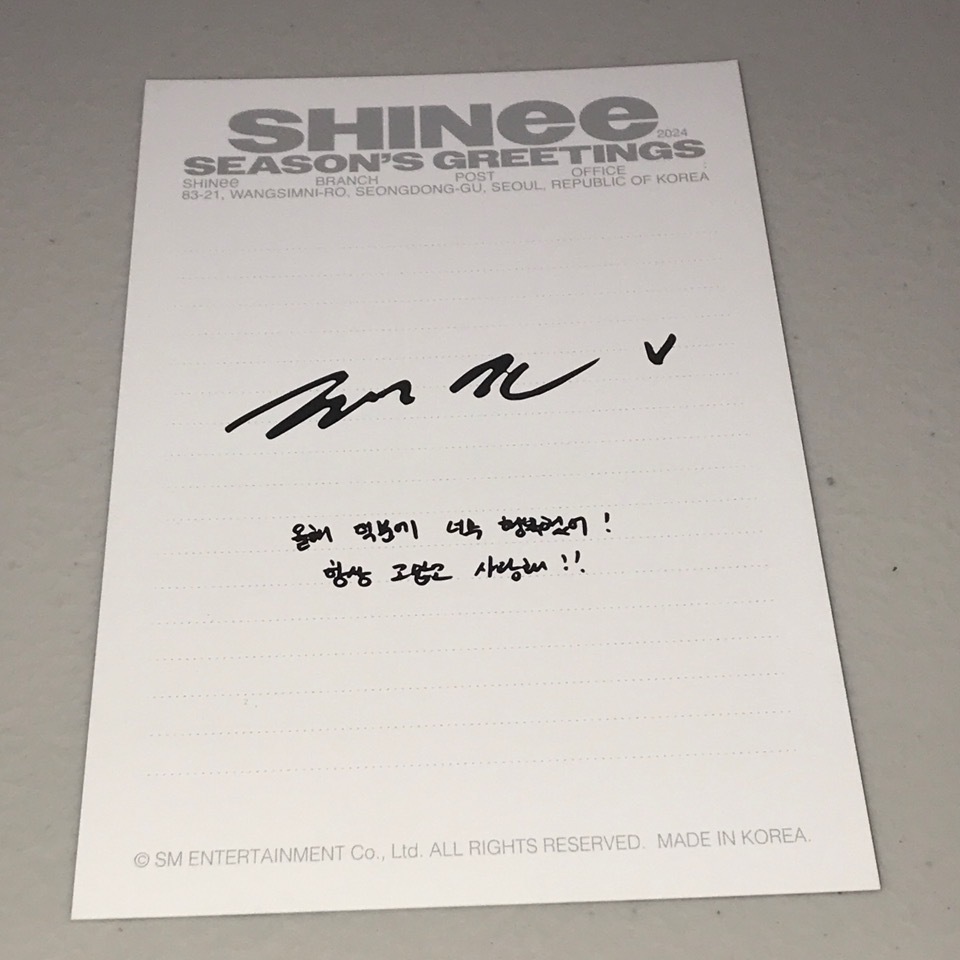 SHINee
2024
SEASON'S GREETINGS
SHINee BRANCH POST OFFICE :
83-21, WANGSIMNI-RO, SEONGDONG-GU, SEOUL, REPUBLIC OF KOREA
올해 덕분에 너무 행복했어!
항상 고맙고 사랑해!!
© SM ENTERTAINMENT Co., Ltd. ALL RIGHTS RESERVED. MADE IN KOREA.